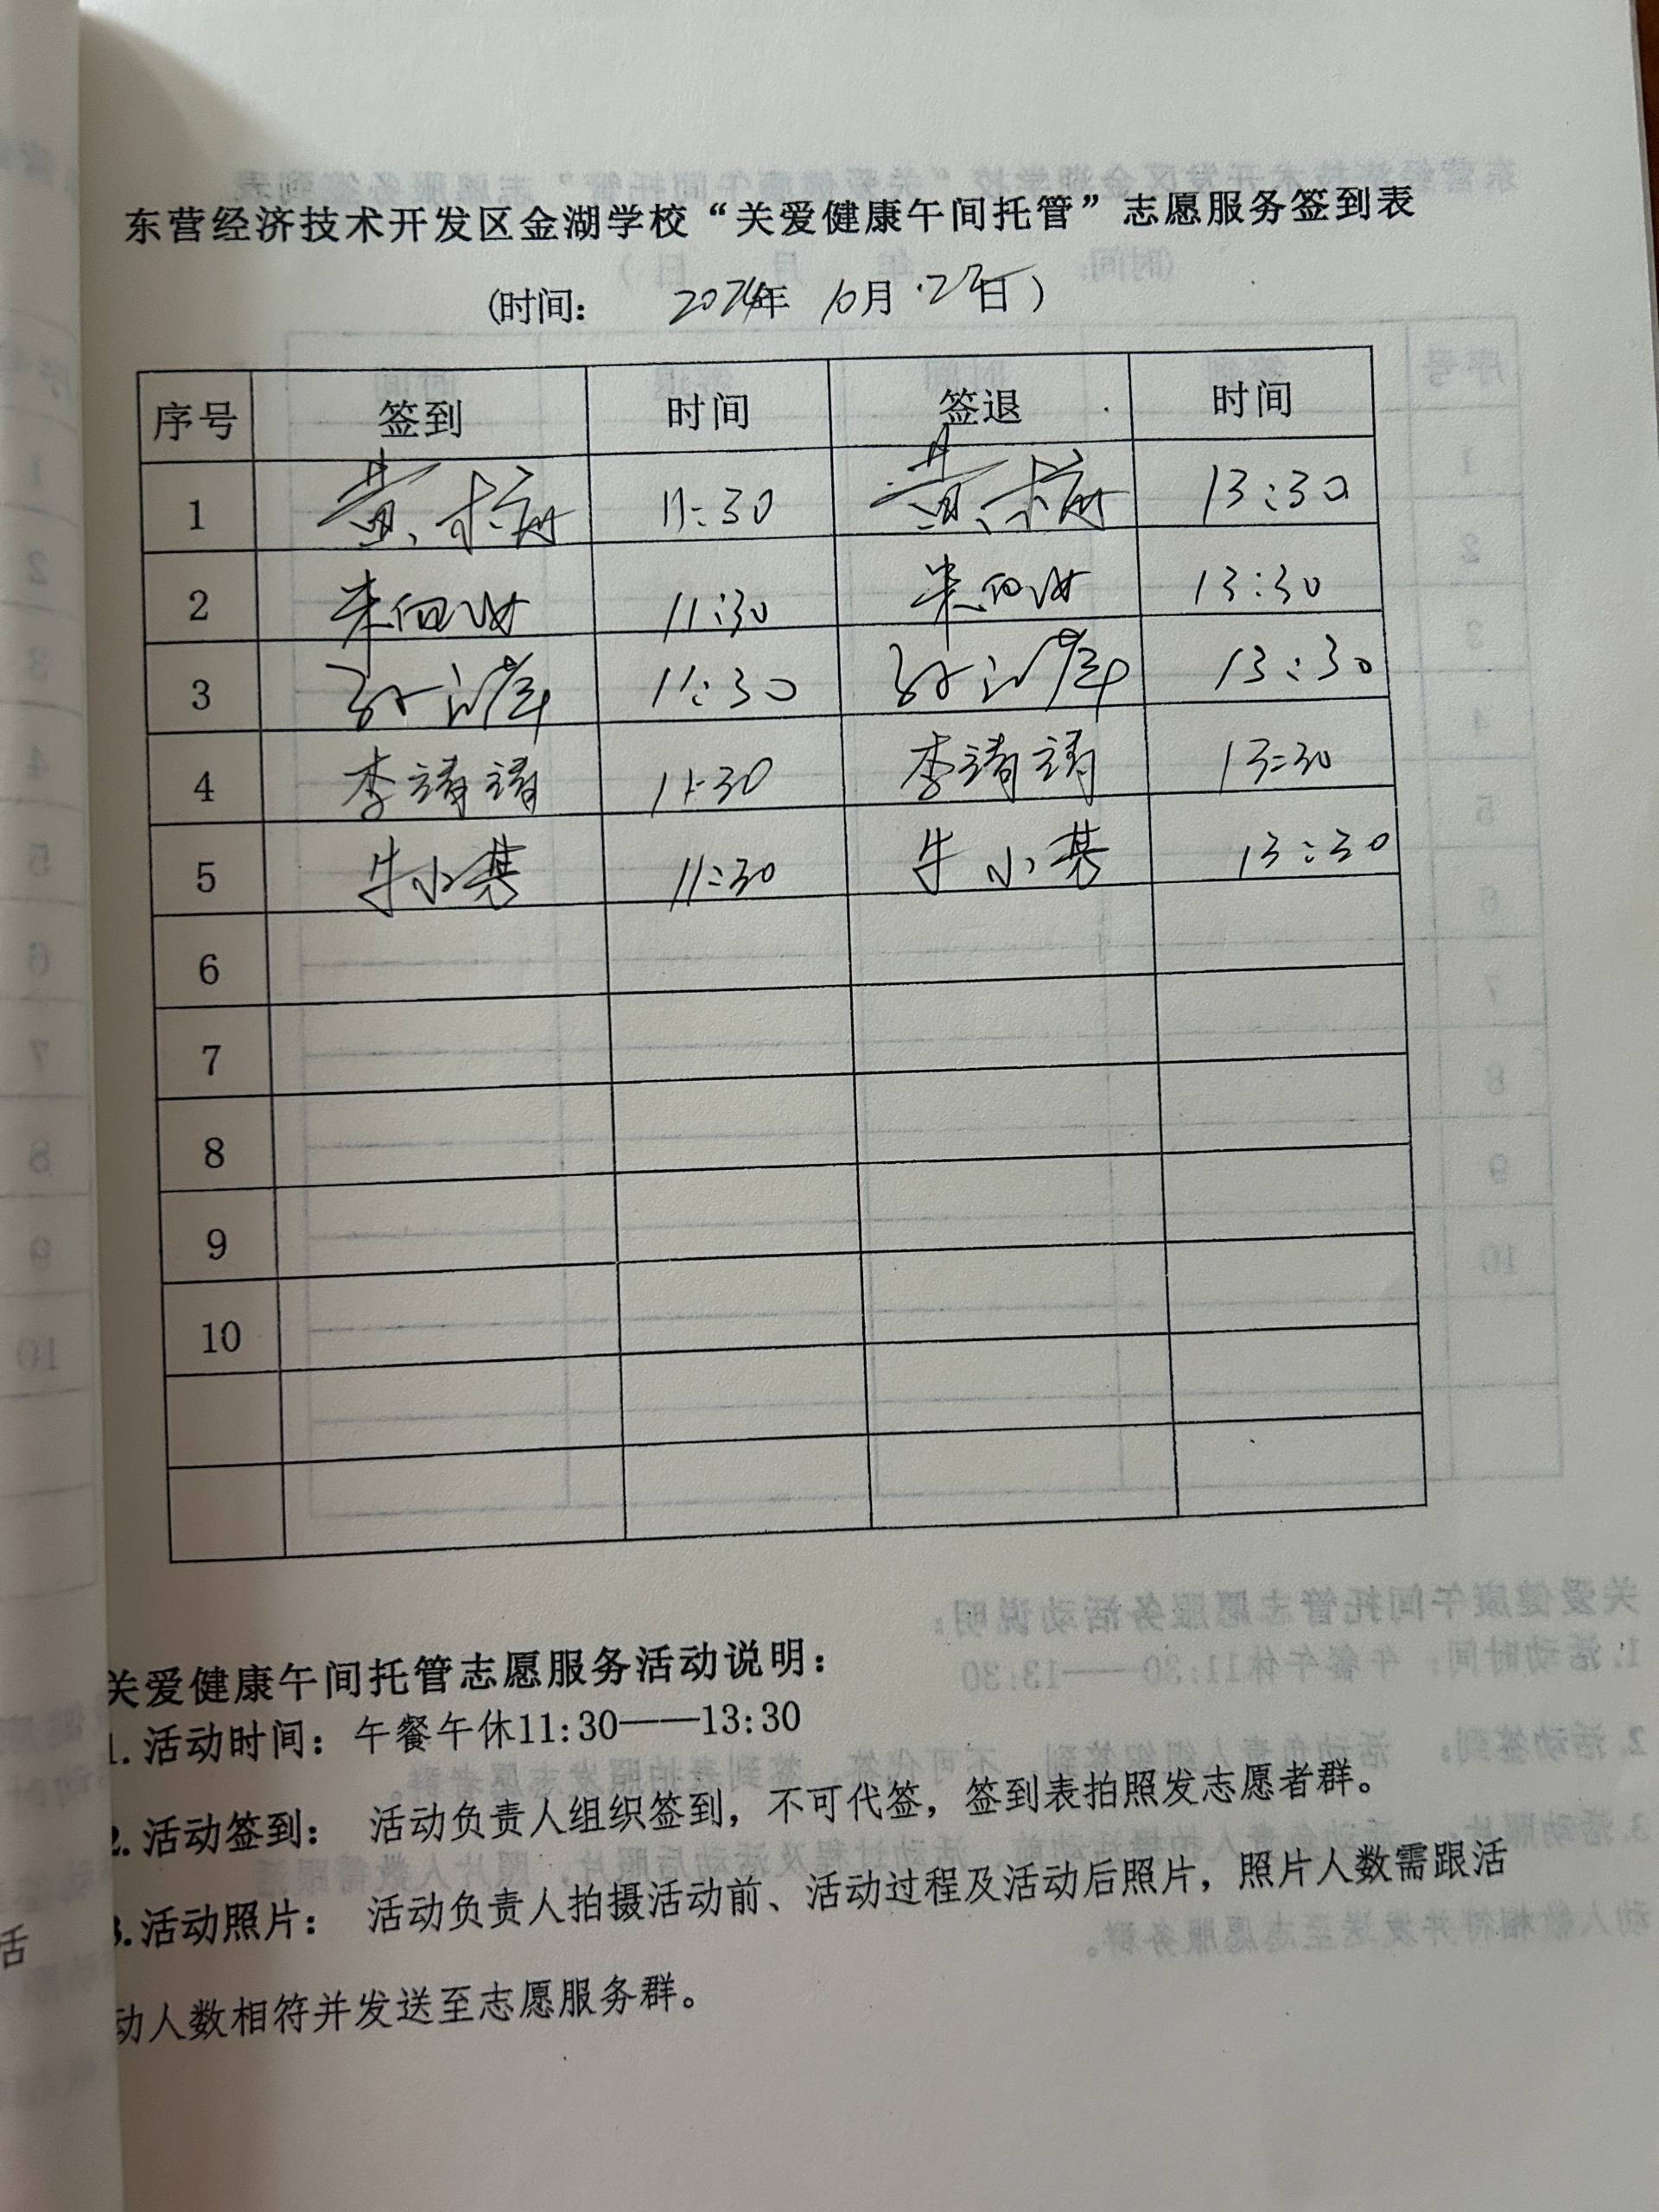 东营经济技术开发区金湖学校“关爱健康午间托管”志愿服务签到表
(时间： 2024年 10月 日）
序号 签到 时间 签退 时间
1 黄 11:30 黄 13:30
2 11:30 13:30
3 孙 11:30 孙 13:30
4 李靖靖 11:30 李靖靖 13:30
5 牛小其 11:30 牛小其 13:30
6
7
8
9
10
关爱健康午间托管志愿服务活动说明：
1.活动时间：午餐午休11:30——13:30
2.活动签到： 活动负责人组织签到，不可代签，签到表拍照发志愿者群。
3.活动照片： 活动负责人拍摄活动前、活动过程及活动后照片，照片人数需跟活
动人数相符并发送至志愿服务群。